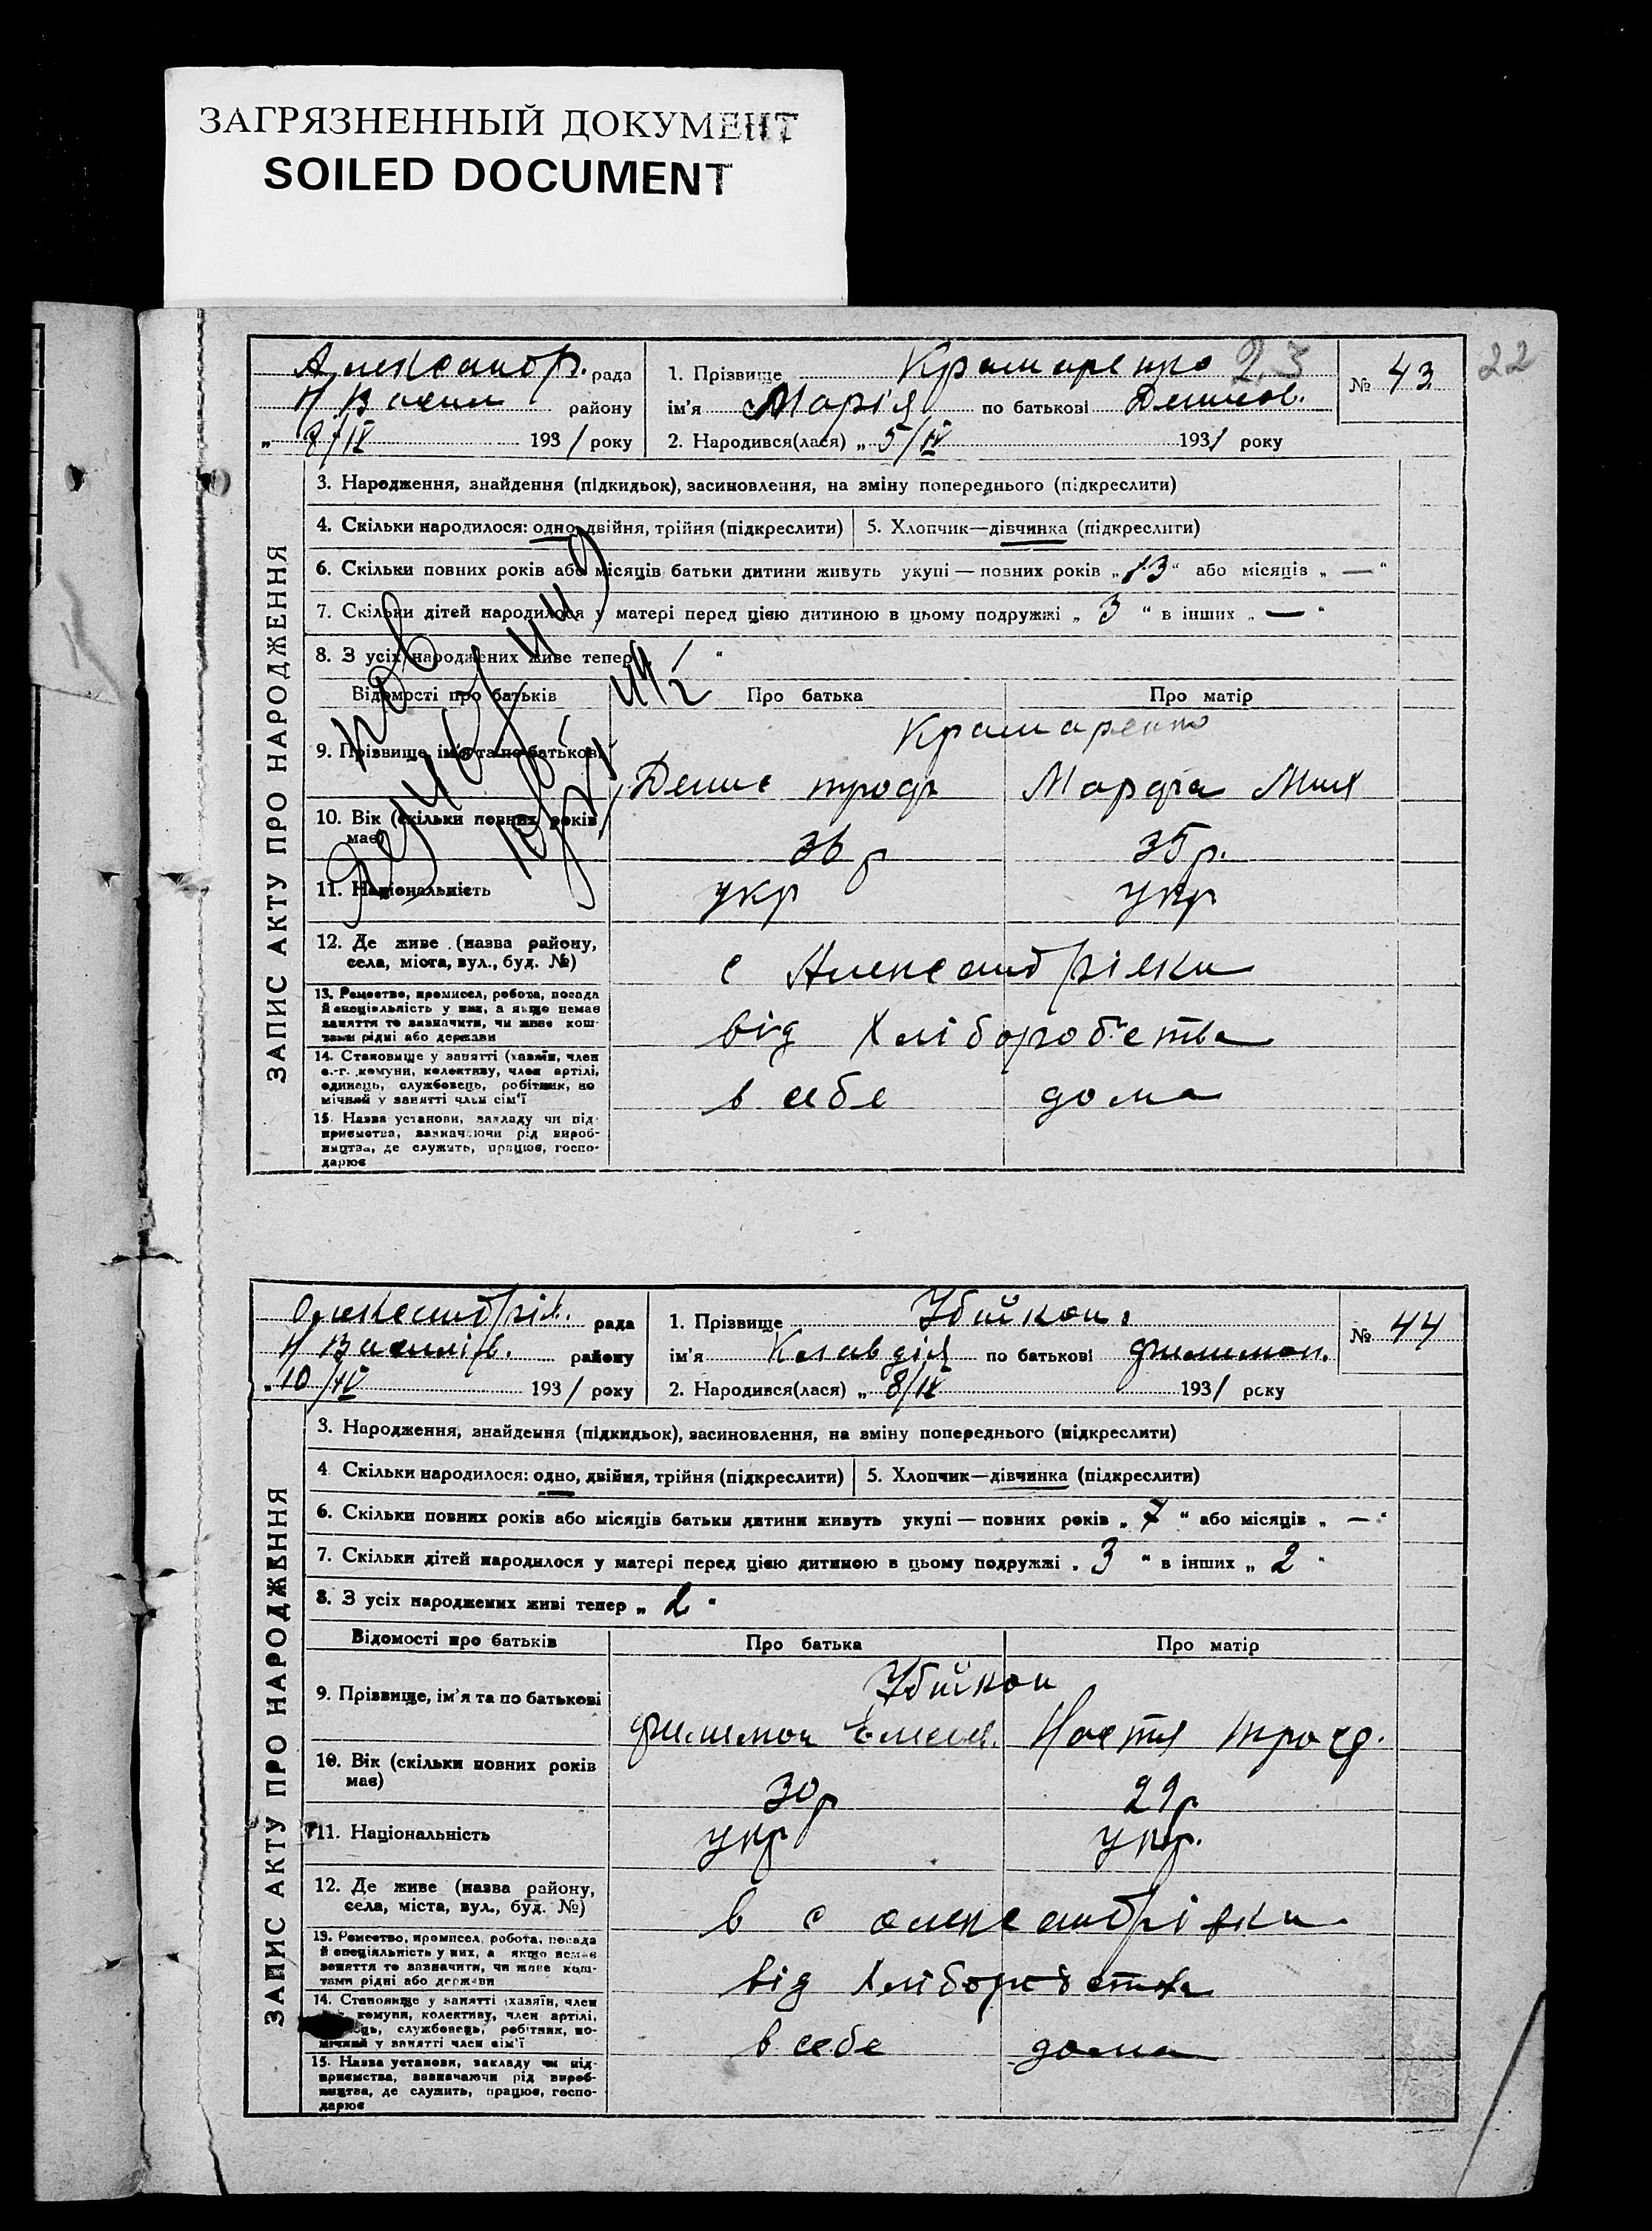 ЗАГРЯЗНЕННЫЙ ДОКУМЕНТ
SOILED DOCUMENT
22
Александр. рада
Н Васил району
„ 8/IV 1931 року
1. Прізвище Крамаренко 23
ім'я Марія по батькові Денисов.
2. Народився(лася) „ 5/IV 1931 року
№ 43
ЗАПИС АКТУ ПРО НАРОДЖЕННЯ
3. Народження, знайдення (підкидьок), засиновлення, на зміну попереднього (підкреслити)
4. Скільки народилося: одно, двійня, трійня (підкреслити) 5. Хлопчик—дівчинка (підкреслити)
6. Скільки повних років або місяців батьки дитини живуть укупі — повних років „ 13 “ або місяців „ — “
7. Скільки дітей народилося у матері перед цією дитиною в цьому подружжі „ 3 “ в інших „ — “
8. З усіх народжених живе тепер „ 1 “
Відомості про батьків Про батька Про матір
9. Прізвище, ім'я та по батькові Крамаренко
Денис Троф Марфа Мих
10. Вік (скільки повних років має) 36 р 35 р.
11. Національність укр укр
12. Де живе (назва району, села, міста, вул., буд. №) с Александрівки
13. Ремество, промисел, робота, посада
й спеціяльність у них, а якщо немає
заняття то визначити, чи живе кош-
тами рідні або держави
від Хліборобства
14. Становище у занятті (хазяїн, член
с.-г. комуни, колективу, член артілі,
одинець, службовець, робітник, по
мічний у занятті член сім'ї
в себе дома
15. Назва установи, закладу чи під-
приємства, зазначаючи рід вироб-
ництва, де служить, працює, госпо-
дарює
Олександрів. рада
Н Василів. району
„ 10/IV 1931 року
1. Прізвище Убийкон
ім'я Клавдія по батькові Филимон.
2. Народився(лася) „ 8/IV 1931 року
№ 44
ЗАПИС АКТУ ПРО НАРОДЖЕННЯ
3. Народження, знайдення (підкидьок), засиновлення, на зміну попереднього (підкреслити)
4. Скільки народилося: одно, двійня, трійня (підкреслити) 5. Хлопчик—дівчинка (підкреслити)
6. Скільки повних років або місяців батьки дитини живуть укупі — повних років „ 7 “ або місяців „ — “
7. Скільки дітей народилося у матері перед цією дитиною в цьому подружжі „ 3 “ в інших „ 2 “
8. З усіх народжених живі тепер „ 2 “
Відомості про батьків Про батька Про матір
9. Прізвище, ім'я та по батькові Убийкон
Филимон Омеля. Настя Троф.
10. Вік (скільки повних років має) 30 р 29 р
11. Національність укр укр.
12. Де живе (назва району, села, міста, вул., буд. №) в с олександрівки
13. Ремество, промисел, робота, посада
й спеціяльність у них, а якщо немає
заняття то зазначити, чи живе кош-
тами рідні або держави
від Хліборобства
14. Становище у занятті (хазяїн, член
комуни, колективу, член артілі,
службовець, робітник, по-
мічний у занятті член сім'ї
в себе дома
15. Назва установи, закладу чи під-
приємства, зазначаючи рід вироб-
ництва, де служить, працює, госпо-
дарює